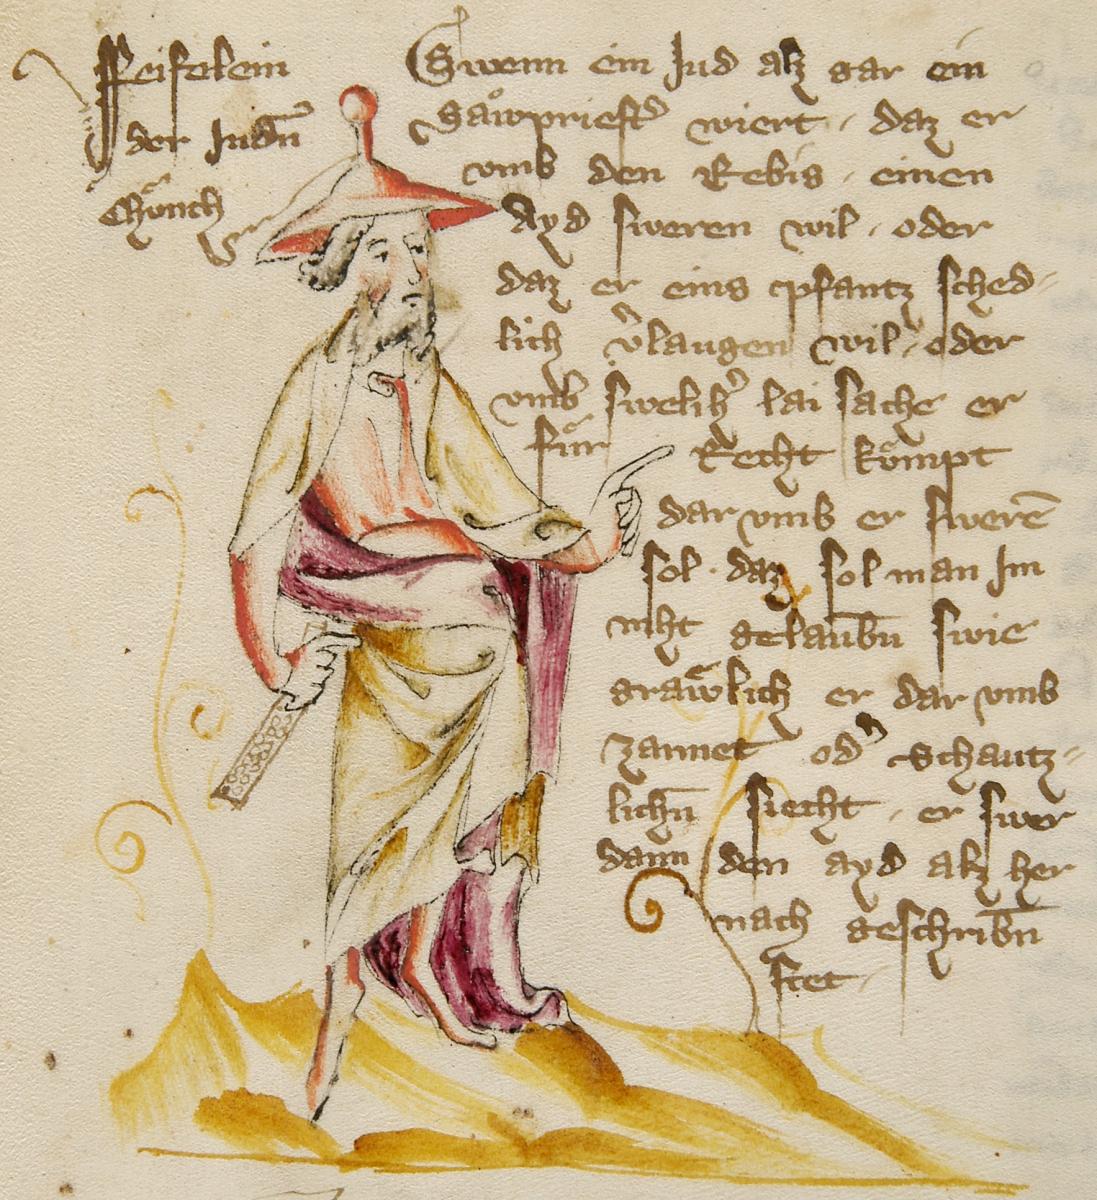 Feifelein
der Judn̄
Chönch
Swenn ein Jud alz gar ein
Gäwpriest̛ wiert · daz er
vmb den Rebis · einen
Ayd sweren wil · oder
daz er eins pfantz sched-
lich v̛laugen wil · oder
vmb swelih̛ lai sache er
für Recht kömpt
dar vmb er swerē
sol · daz sol man Im
niht gelaubn̄ swie
gräwlich er dar vmb
zannet od̛ Schautz-
lichn̄ siecht · er swer
dann den ayd alz her
nach geschribn̄
stet ·